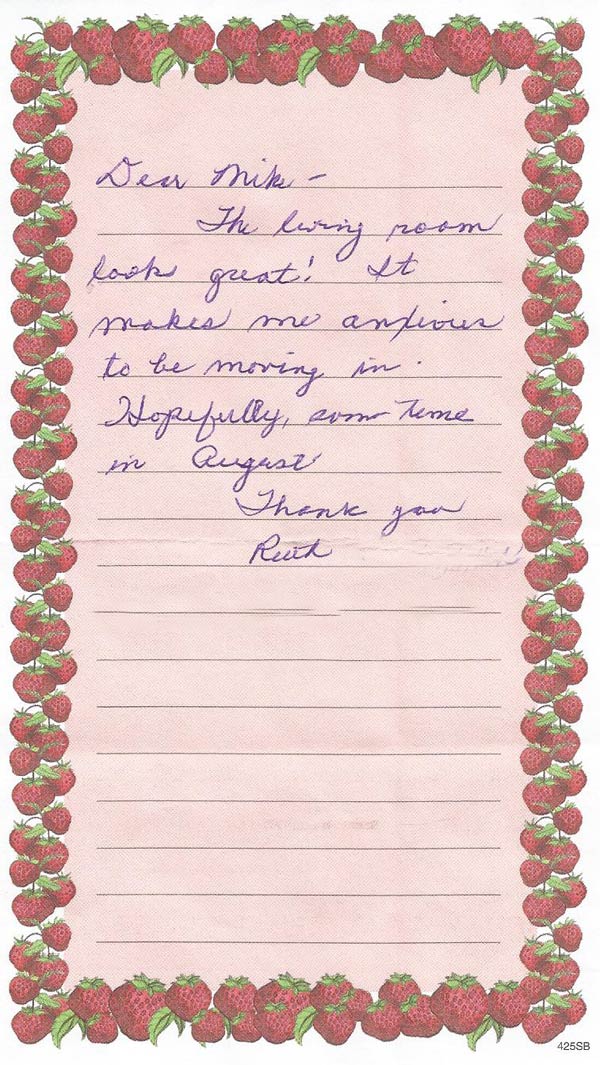 Dear Mike –
The living room
looks great! It
makes me anxious
to be moving in.
Hopefully, some time
in August
Thank you
Ruth
425SB